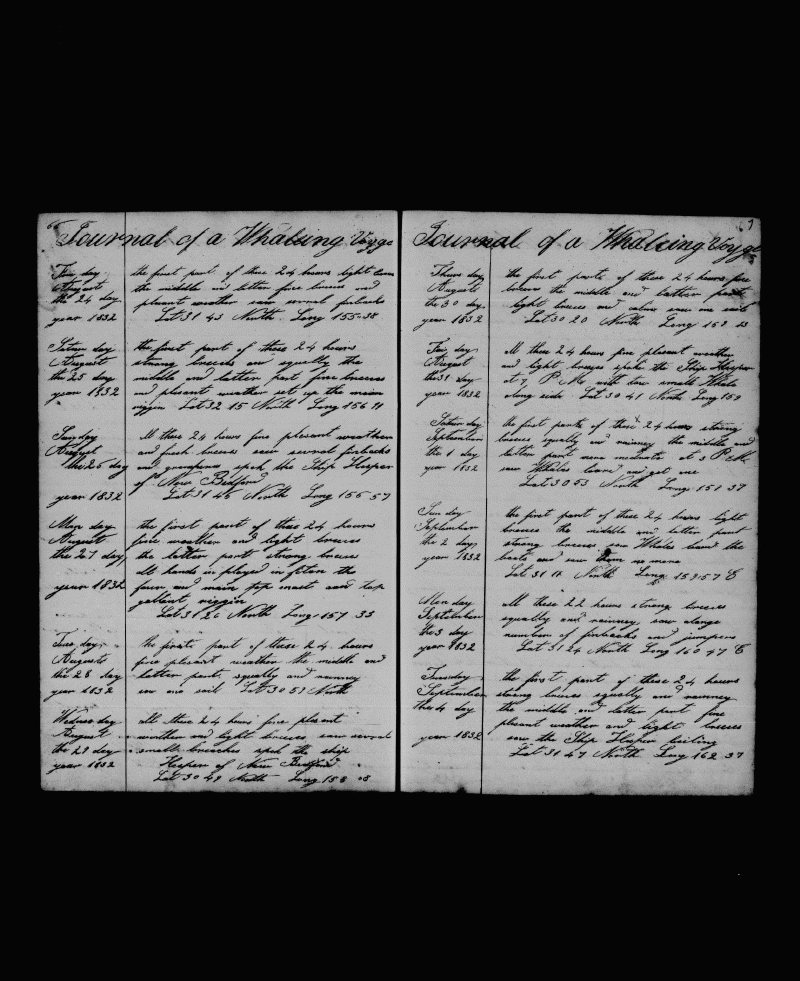 66
Journal of a Whaleing Voyge
Fri day
August
the 24 day
year 1832
the first part of these 24 hours light
the middle and latter fine breeses and
plesent weather saw several finbacks
Lat 31 43 North Long 155=38
Satur day
August
the 25 day
year 1832
the first part of these 24 hours
strong breeses and squally the
middle and latter part fine breeses
and plesent weather set up the main
riggin Lat 32 15 North Long 156 11
Sunday
August
the 26 day
year 1832
All these 24 hours fine plesent weather
and fresh breeses saw several finbacks
and grampuses spok the Ship Hesper
of New Bedford
Lat 31 45 North Long 156=57
Mon day
August
the 27 day
year 1832
the first part of these 24 hours
fine weather and light breeses
the latter part strong breese
all hands in ployed in
fower and main top mast and top
gallent riggin
Lat 31 26 North Long 157 33
Tues day
August
the 28 day
year 1832
the first part of these 24 hours
fine plesent weather the middle and
latter part squally and rainney
saw one sail Lat 30 51 North
Wednes day
August
the 29 day
year 1832
all these 24 hours fine plesent
weather and light breeses saw several
small breaches spok the ship
Hesper of New Bedford
Lat 30 49 North Long 158
67
Journal of a Whaleing Voyge
Thurs day
August
the 30 day
year 1832
the first part of these 24 hours fine
breeses the middle and latter part
light breeses and calm saw one sail
Lat 30 20 North Long 159
Fri day
August
the 31 day
year 1832
All these 24 hours fine plesent weather
and light breeses spok the Ship Hesper
at 7 P M with small Whale
along side Lat 30 41 North Long 159
Satur day
September
the 1 day
year 1832
the first part of these 24 hours strong
breeses squally and rainney the middle and
latter part more moderate at 3 P M
saw Whales and get one
Lat 30 53 North Long 151 37
Sun day
September
the 2 day
year 1832
the first part of these 24 hours light
breeses the middle and latter part
strong breeses saw Whales the
boats and saw them no more
Lat 31 11 North Long 159=57 E
Mon day
September
the 3 day
year 1832
All these 22 hours strong breeses
squally and rainney saw alarge
number of finbacks and jumpers
Lat 31 24 North Long 160 47 E
Tuesday
September
the 4 day
year 1832
the first part of these 24 hours
strong breeses squally and rainney
the middle and latter part fine
plesent weather and light breeses
saw the Ship Hesper boiling
Lat 31 47 North Long 162 37